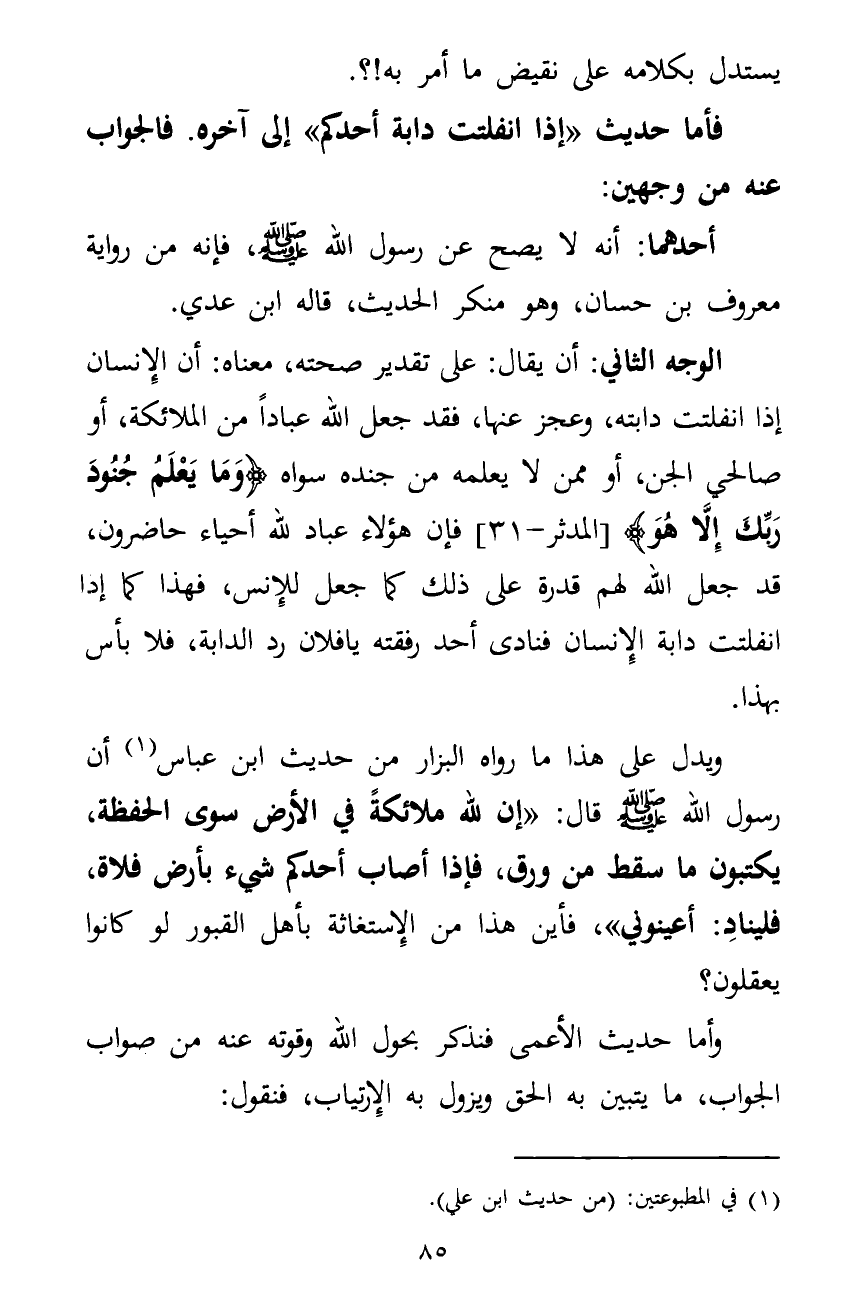 يستدل بكلامه على نقيض ما أمر به!؟.
فأما حديث «إذا انفلتت دابة أحدكم» إلى آخره. فالجواب
عنه من وجهين:
أحدهما: أنه لا يصح عن رسول الله ﷺ، فإنه من رواية
معروف بن حسان، وهو منكر الحديث، قاله ابن عدي.
الوجه الثاني: أن يقال: على تقدير صحته، معناه: أن الإنسان
إذا انفلتت دابته، وعجز عنها، فقد جعل الله عباداً من الملائكة، أو
صالحي الجن، أو ممن لا يعلمه من جنده سواه ﴿وَمَا يَعْلَمُ جُنُودَ
رَبِّكَ إِلَّا هُوَ﴾ [المدثر-٣١] فإن هؤلاء عباد لله أحياء حاضرون،
قد جعل الله لهم قدرة على ذلك كما جعل للإنس، فهذا كما إدا
انفلتت دابة الإنسان فنادى أحد رفقته يافلان رد الدابة، فلا بأس
بهذا.
ويدل على هذا ما رواه البزار من حديث ابن عباس(١) أن
رسول الله ﷺ قال: «إن لله ملائكةً في الأرض سوى الحفظة،
يكتبون ما سقط من ورق، فإذا أصاب أحدكم شيء بأرض فلاة،
فلينادِ: أعينوني»، فأين هذا من الإستغاثة بأهل القبور لو كانوا
يعقلون؟
وأما حديث الأعمى فنذكر بحول الله وقوته عنه من صواب
الجواب، ما يتبين به الحق ويزول به الإرتياب، فنقول:
(١) في المطبوعتين: (من حديث ابن علي).
٨٥